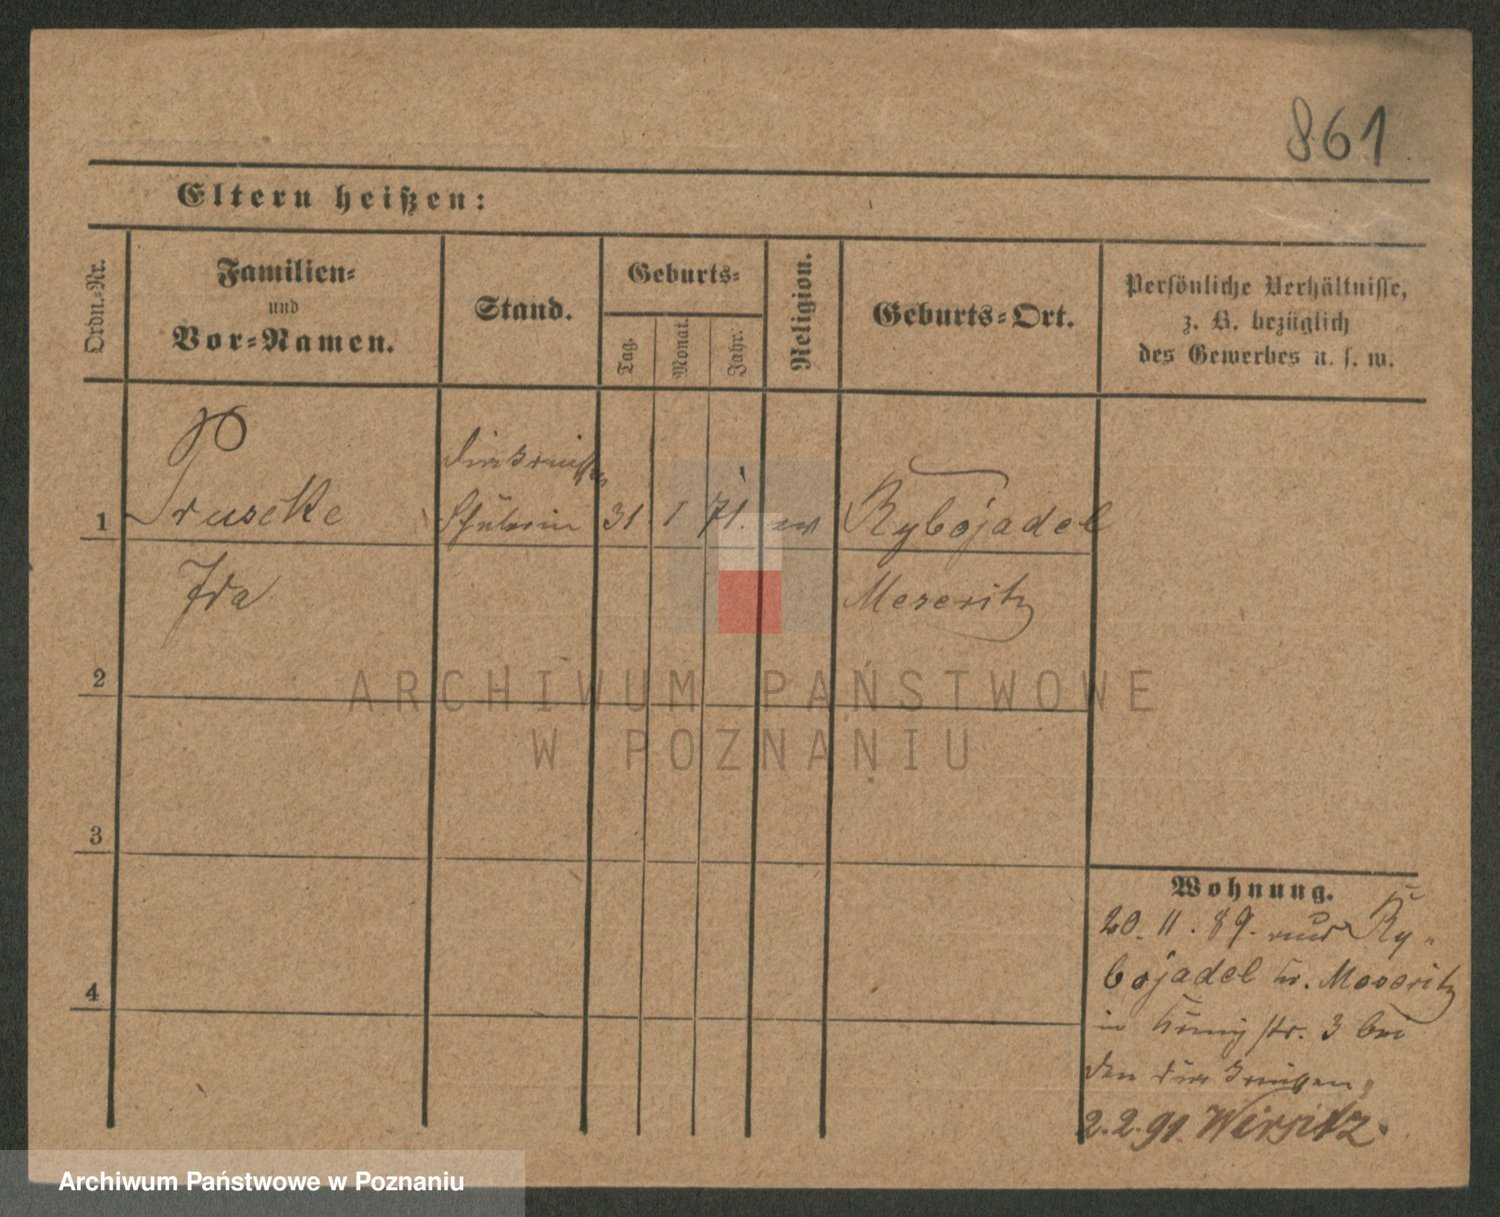 861
Eltern heißen:
Ordn.-Nr.
Familien-
und
Vor-Namen.
Stand.
Geburts-
Tag.
Monat.
Jahr.
Religion.
Geburts-Ort.
Persönliche Verhältnisse,
z. B. bezüglich
des Gewerbes u. s. w.
1
Pruscke
Schülerin
31
1
71.
ev
Rybojadel
Ida
Meseritz
2
ARCHIWUM PAŃSTWOWE
W POZNANIU
3
4
Wohnung.
20. 11. 89. aus Ry-
bojadel Kr. Meseritz
in König str. 3 bei
den
2.2.91. Wirsitz.
Archiwum Państwowe w Poznaniu